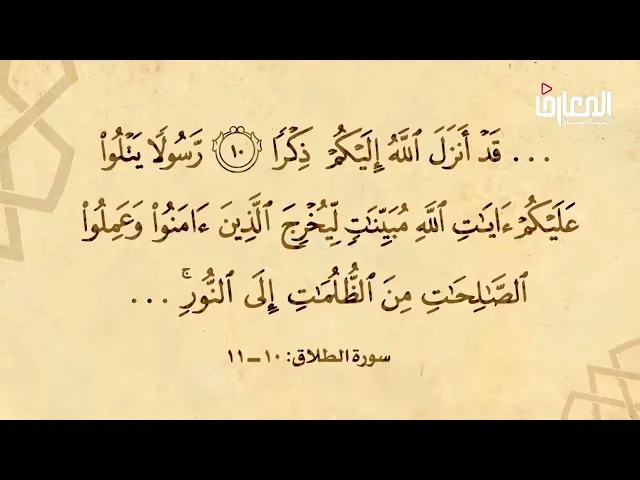 المعارف
... قَدْ أَنزَلَ ٱللَّهُ إِلَيْكُمْ ذِكْرًا ۝١٠ رَّسُولًا يَتْلُوا۟
عَلَيْكُمْ ءَايَٰتِ ٱللَّهِ مُبَيِّنَٰتٍ لِّيُخْرِجَ ٱلَّذِينَ ءَامَنُوا۟ وَعَمِلُوا۟
ٱلصَّٰلِحَٰتِ مِنَ ٱلظُّلُمَٰتِ إِلَى ٱلنُّورِ ۚ ...
سورة الطلاق: ١٠-١١